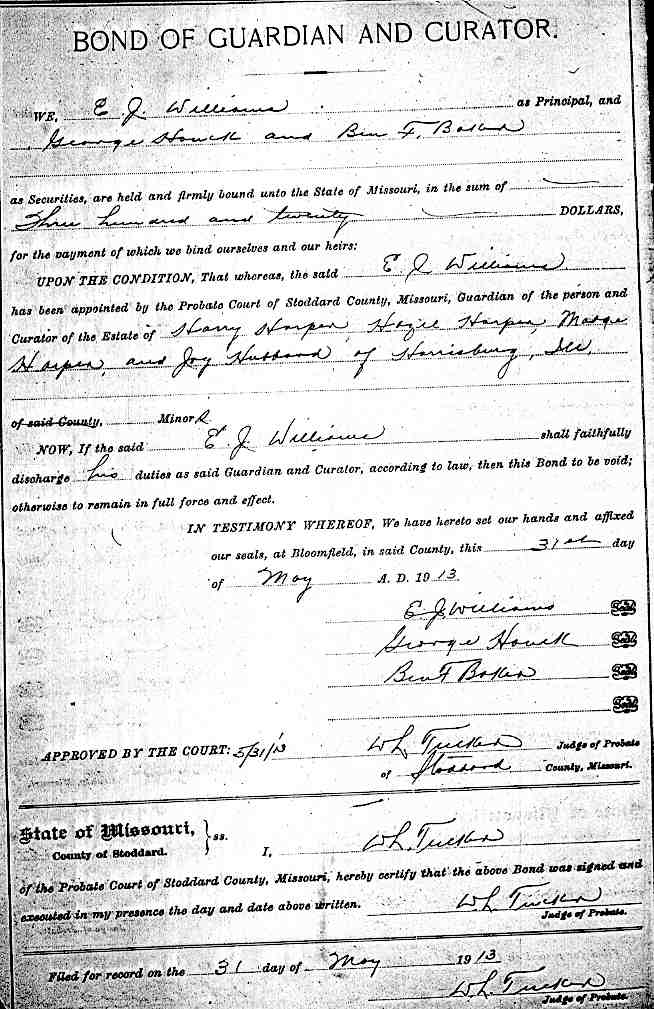 BOND OF GUARDIAN AND CURATOR.
WE, E. J. Williams as Principal, and
George Houck and Ben F. Baker
as Securities, are held and firmly bound unto the State of Missouri, in the sum of
Three hundred and twenty DOLLARS,
for the payment of which we bind ourselves and our heirs:
UPON THE CONDITION, That whereas, the said E J Williams
has been appointed by the Probate Court of Stoddard County, Missouri, Guardian of the person and
Curator of the Estate of Harry Harper, Hazel Harper, Madge
Harper, and Joy Hubbard of Harrisburg, Ills,
of said County, Minor
NOW, If the said E. J. Williams shall faithfully
discharge his duties as said Guardian and Curator, according to law, then this Bond to be void;
otherwise to remain in full force and effect.
IN TESTIMONY WHEREOF, We have hereto set our hands and affixed
our seals, at Bloomfield, in said County, this 31st day
of May A. D. 1913.
E J Williams Seal
George Houck Seal
Ben F Baker Seal
Seal
APPROVED BY THE COURT: 5/31/13 W L Tucker Judge of Probate
of Stoddard County, Missouri.
State of Missouri, } ss.
County of Stoddard. I, W L. Tucker
of the Probate Court of Stoddard County, Missouri, hereby certify that the above Bond was signed and
executed in my presence the day and date above written. W L Tucker
Judge of Probate.
Filed for record on the 31 day of May 1913
W. L. Tucker
Judge of Probate.